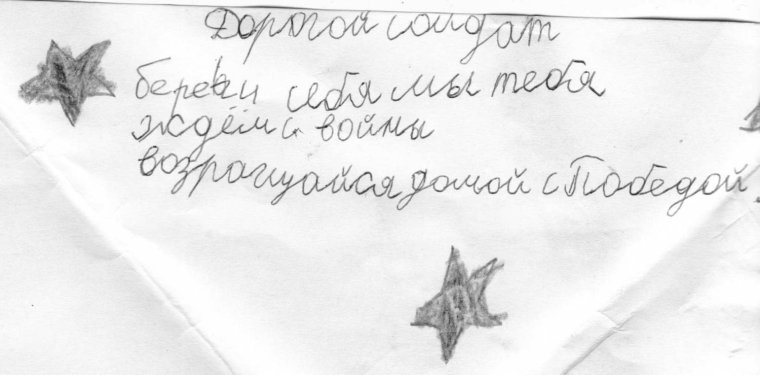 Дорогой солдат
береги себя мы тебя
ждём с войны
возрощайся домой с Победой.